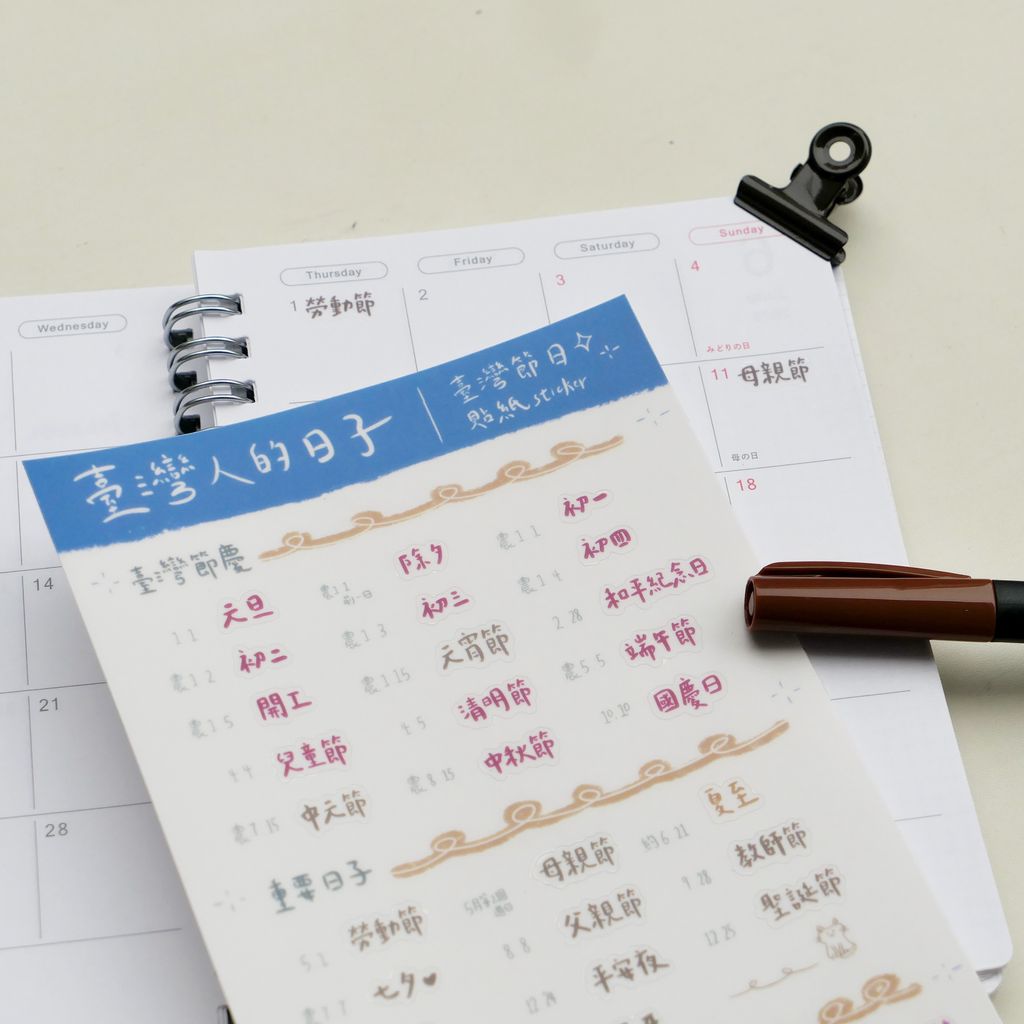 Wednesday
Thursday
Friday
Saturday
Sunday
1 勞動節
2
3
4
みどりの日
11 母親節
母の日
18
14
21
28
臺灣人的日子
臺灣節日
貼紙 sticker
臺灣節慶
1 1 元旦
農1 1 前一日 除夕
農1 1 初一
農1 2 初二
農1 3 初三
農1 4 初四
農1 5 開工
農1 15 元宵節
2 28 和平紀念日
4 4 兒童節
4 5 清明節
農5 5 端午節
農7 15 中元節
農8 15 中秋節
10 10 國慶日
重要日子
5 1 勞動節
5月第2個週日 母親節
約6 21 夏至
7 7 七夕♥
8 8 父親節
9 28 教師節
12 24 平安夜
12 25 聖誕節